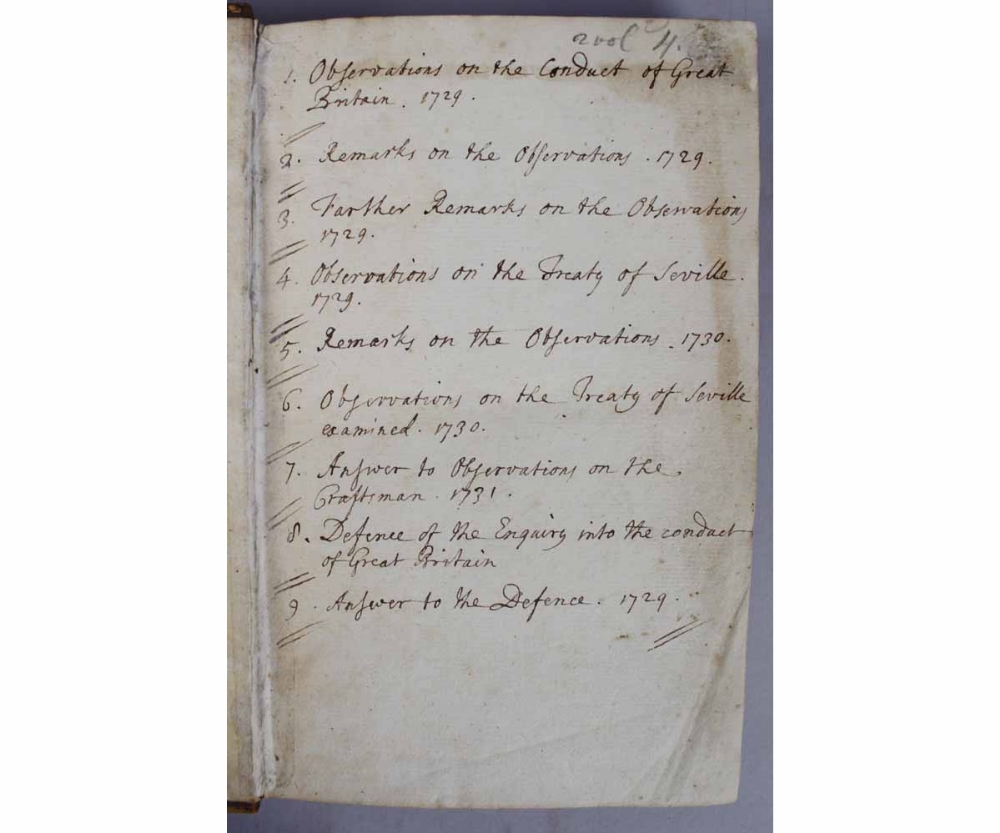 2 vol 4.
1. Observations on the Conduct of Great
Britain. 1729.
2. Remarks on the Observations. 1729.
3. Farther Remarks on the Observations
1729.
4. Observations on the Treaty of Seville.
1729.
5. Remarks on the Observations. 1730.
6. Observations on the Treaty of Seville
examined. 1730.
7. Answer to Observations on the
Craftsman. 1731.
8. Defence of the Enquiry into the conduct
of Great Britain
9. Answer to the Defence. 1729.